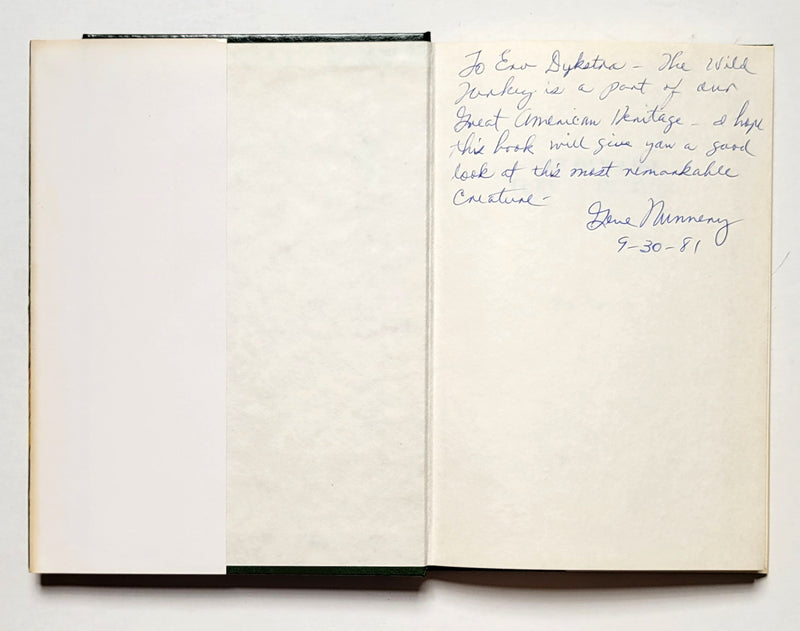 To Erv Dykstra – The Wild
Turkey is a part of our
Great American Heritage – I hope
this book will give you a good
look at this most remarkable
Creature –
Gene Nunnery
9-30-81